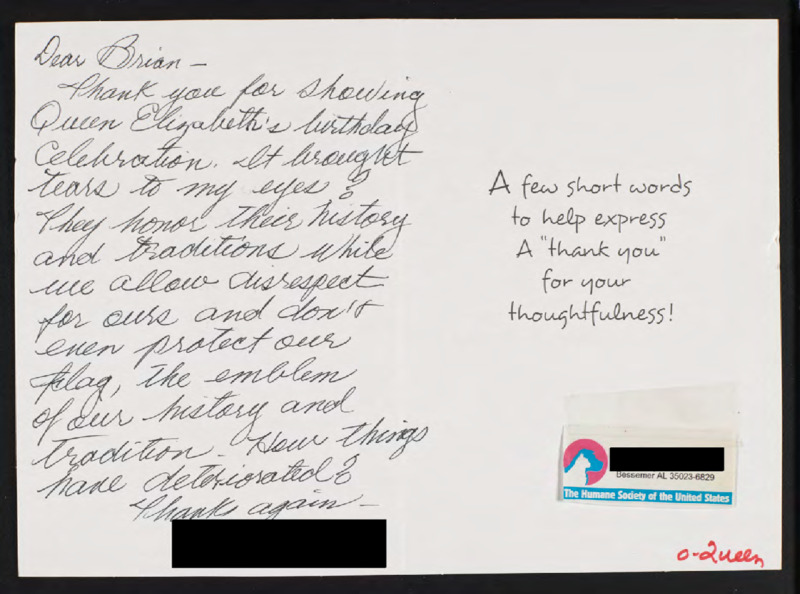 Dear Brian –
Thank you for showing
Queen Elizabeth's birthday
Celebration. It brought
tears to my eyes?
They honor their history
and traditions while
we allow disrespect
for ours and don't
even protect our
flag, the emblem
of our history and
tradition – How things
have deteriorated?
Thanks again –
A few short words
to help express
A "thank you"
for your
thoughtfulness!
Bessemer AL 35023-6829
The Humane Society of the United States
O-Queen